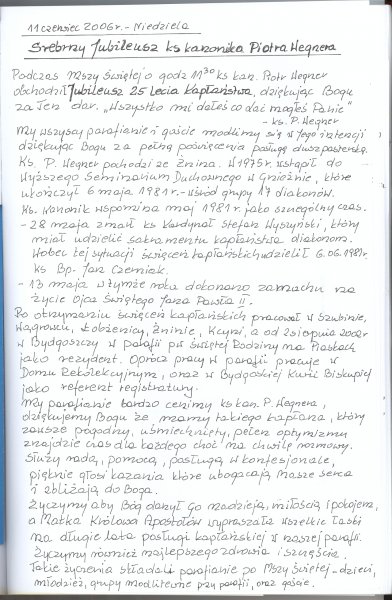 11 czerwiec 2006 r. - Niedziela
Srebrny Jubileusz ks kanonika Piotra Wegnera
Podczas Mszy Świętej o godz 11³⁰ ks kan. Piotr Wegner
obchodził Jubileusz 25 lecia Kapłaństwa, dziękując Bogu
za Ten dar. „Wszystko mi dałeś co dać mogłeś Panie"
- ks. P. Wegner
My wszyscy parafianie i goście modlimy się w Jego intencji
dziękując Bogu za pełną poświęcenia posługę duszpasterską.
Ks. P. Wegner pochodzi ze Żnina. W 1975r. wstąpił do
Wyższego Seminarium Duchownego w Gnieźnie, które
ukończył 6 maja 1981 r. - wśród grupy 17 diakonów.
Ks. Kanonik wspomina maj 1981 r. jako szczególny czas.
- 28 maja zmarł ks Kardynał Stefan Wyszyński, który
miał udzielić sakramentu kapłaństwa diakonom.
Wobec tej sytuacji święceń kapłańskich udzielił 6.06.1981r.
ks Bp. Jan Czerniak.
- 13 maja w tymże roku dokonano zamachu na
życie Ojca Świętego Jana Pawła II.
Po otrzymaniu święceń kapłańskich pracował w Szubinie,
Wągrowcu, Łobżenicy, Żninie, Kcyni, a od 2 sierpnia 2002r
w Bydgoszczy w parafii pw Świętej Rodziny na Piaskach
jako rezydent. Oprócz pracy w parafii pracuje w
Domu Rekolekcyjnym, oraz w Bydgoskiej Kurii Biskupiej
jako referent registratury.
My parafianie bardzo cenimy ks kan. P. Wegnera,
dziękujemy Bogu że mamy takiego kapłana, który
zawsze pogodny, uśmiechnięty, pełen optymizmu
znajdzie czas dla każdego choć na chwilę rozmowy.
Służy radą, pomocą, posługą w konfesjonale,
pięknie głosi kazania które ubogacają nasze serca
i zbliżają do Boga.
Życzymy aby Bóg darzył Go nadzieją, miłością i pokojem,
a Matka Królowa Apostołów wypraszała wszelkie łaski
na długie lata posługi kapłańskiej w naszej parafii.
Życzymy również najlepszego zdrowia i szczęścia.
Takie życzenia składali parafianie po Mszy Świętej - dzieci,
młodzież, grupy modlitewne przy parafii, oraz goście.